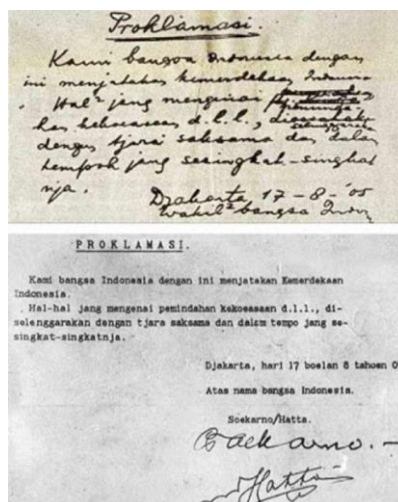 Proklamasi.
Kami bangsa Indonesia dengan
ini menjatakan kemerdekaan Indones
Hal² jang mengenai
kekoeasaan d.l.l.,
dengan tjara saksama dan dalam
tempoh jang sesingkat-singkat
nja.
Djakarta, 17-8-'05
Wakil² bangsa Indon
PROKLAMASI.
Kami bangsa Indonesia dengan ini menjatakan Kemerdekaan
Indonesia.
Hal-hal jang mengenai pemindahan kekoeasaan d.l.l., di-
selenggarakan dengan tjara saksama dan dalam tempo jang se-
singkat-singkatnja.
Djakarta, hari 17 boelan 8 tahoen 0
Atas nama bangsa Indonesia.
Soekarno/Hatta.
Soekarno.-
Hatta